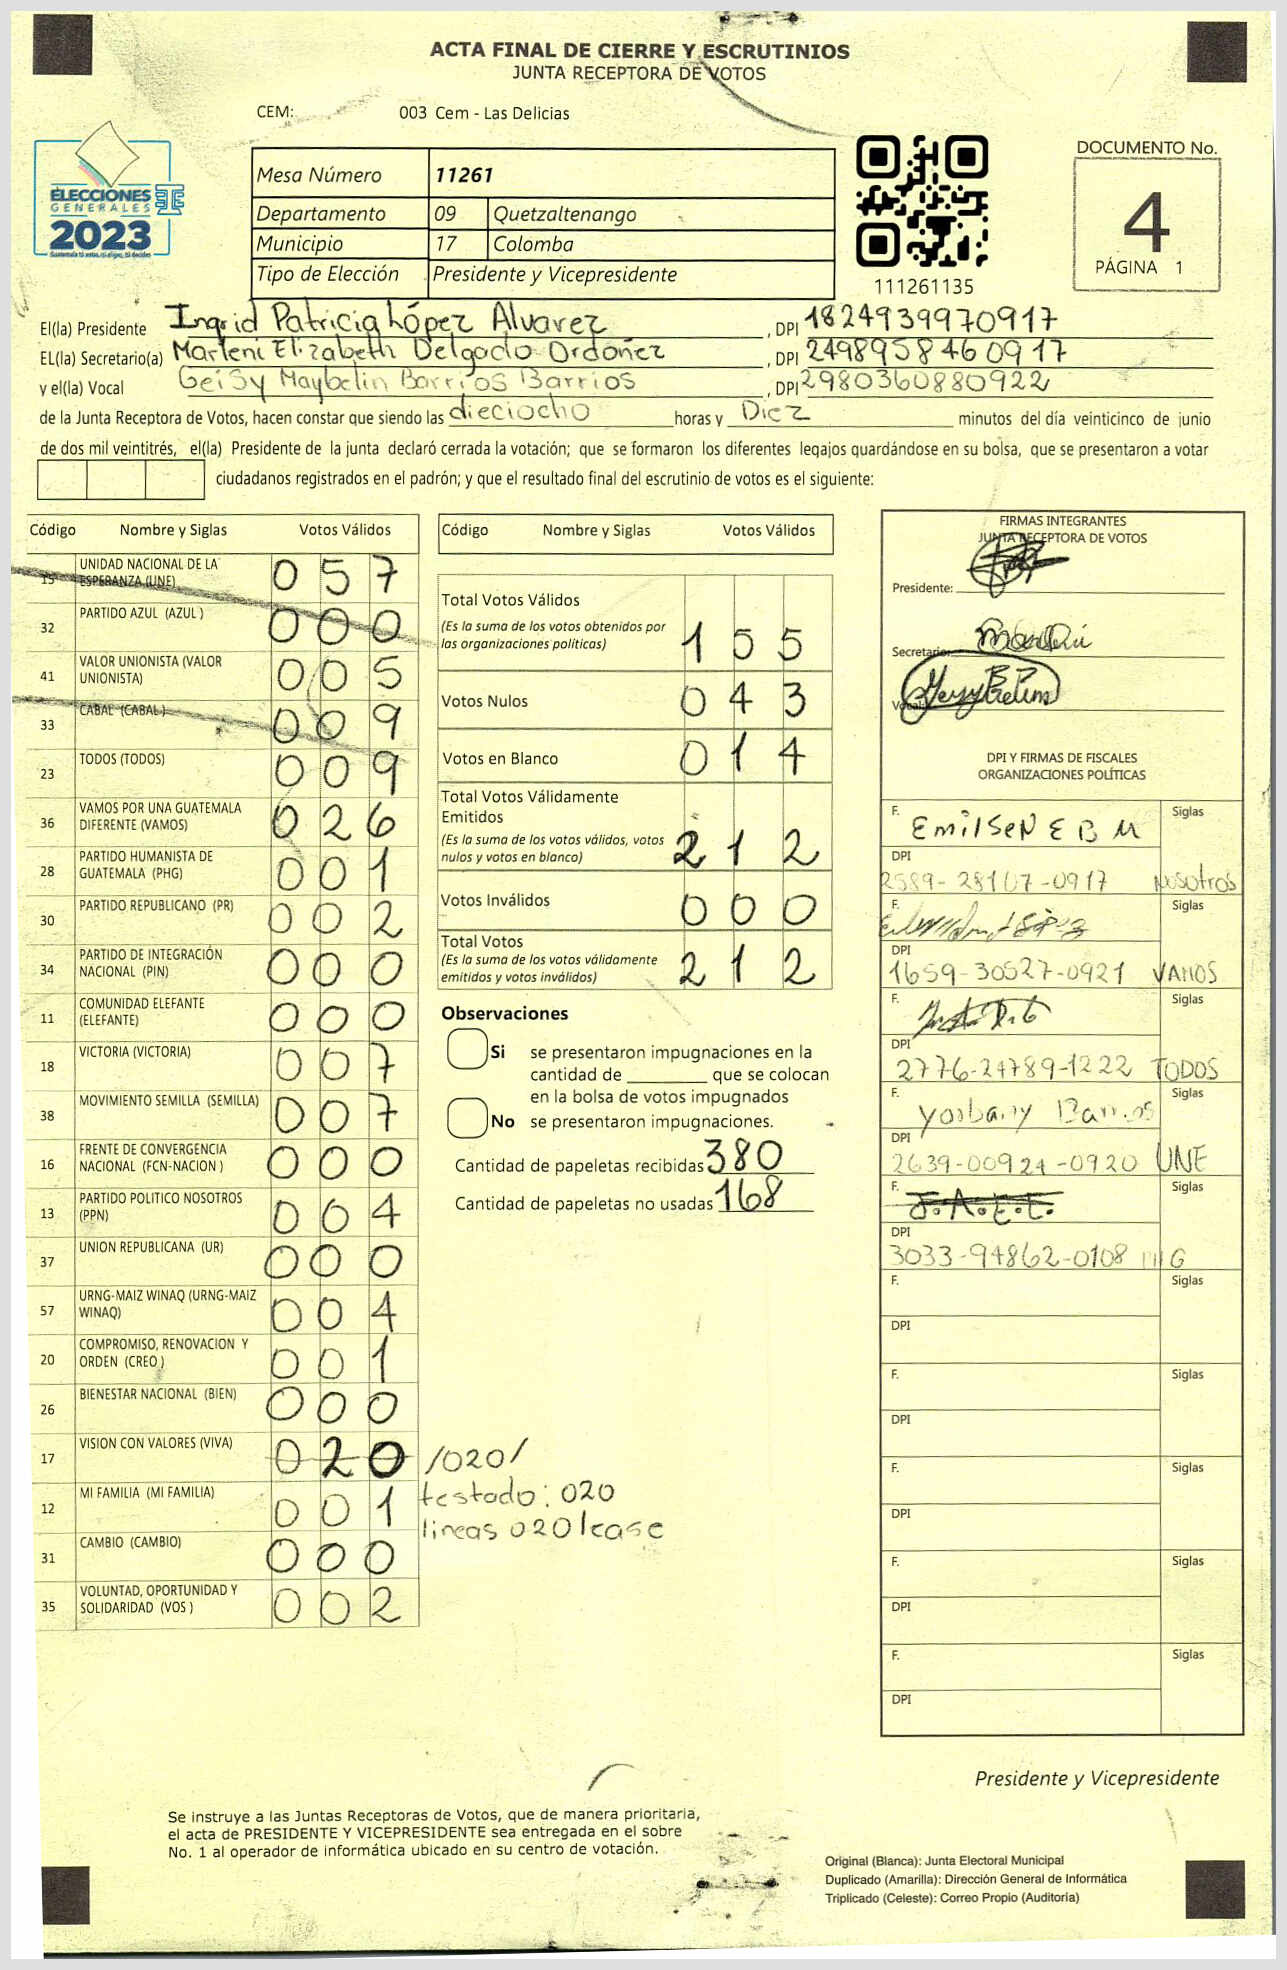 ACTA FINAL DE CIERRE Y ESCRUTINIOS
JUNTA RECEPTORA DE VOTOS
CEM: 003 Cem - Las Delicias
ELECCIONES
GENERALES
2023
Mesa Número 11261
Departamento 09 Quetzaltenango
Municipio 17 Colomba
Tipo de Elección Presidente y Vicepresidente
111261135
DOCUMENTO No.
4
PÁGINA 1
El(la) Presidente Ingrid Patricia López Alvarez, DPI 1824939970917
EL(la) Secretario(a) Marleni Elizabeth Delgado Ordoñez, DPI 2498958460917
y el(la) Vocal Geisy Maybelin Barrios Barrios, DPI 2980360880922
de la Junta Receptora de Votos, hacen constar que siendo las dieciocho horas y Diez minutos del día veinticinco de junio
de dos mil veintitrés, el(la) Presidente de la junta declaró cerrada la votación; que se formaron los diferentes legajos guardándose en su bolsa, que se presentaron a votar
ciudadanos registrados en el padrón; y que el resultado final del escrutinio de votos es el siguiente:
Código Nombre y Siglas Votos Válidos
15 UNIDAD NACIONAL DE LA ESPERANZA (UNE) 057
32 PARTIDO AZUL (AZUL ) 000
41 VALOR UNIONISTA (VALOR UNIONISTA) 005
33 CABAL (CABAL ) 009
23 TODOS (TODOS) 009
36 VAMOS POR UNA GUATEMALA DIFERENTE (VAMOS) 026
28 PARTIDO HUMANISTA DE GUATEMALA (PHG) 001
30 PARTIDO REPUBLICANO (PR) 002
34 PARTIDO DE INTEGRACIÓN NACIONAL (PIN) 000
11 COMUNIDAD ELEFANTE (ELEFANTE) 000
18 VICTORIA (VICTORIA) 007
38 MOVIMIENTO SEMILLA (SEMILLA) 007
16 FRENTE DE CONVERGENCIA NACIONAL (FCN-NACION ) 000
13 PARTIDO POLITICO NOSOTROS (PPN) 004
37 UNION REPUBLICANA (UR) 000
57 URNG-MAIZ WINAQ (URNG-MAIZ WINAQ) 004
20 COMPROMISO, RENOVACION Y ORDEN (CREO ) 001
26 BIENESTAR NACIONAL (BIEN) 000
17 VISION CON VALORES (VIVA) 020 /020/
testado: 020
lineas 020 lease
12 MI FAMILIA (MI FAMILIA) 001
31 CAMBIO (CAMBIO) 000
35 VOLUNTAD, OPORTUNIDAD Y SOLIDARIDAD (VOS ) 002
Código Nombre y Siglas Votos Válidos
Total Votos Válidos
(Es la suma de los votos obtenidos por las organizaciones políticas) 155
Votos Nulos 043
Votos en Blanco 014
Total Votos Válidamente Emitidos
(Es la suma de los votos válidos, votos nulos y votos en blanco) 212
Votos Inválidos 000
Total Votos
(Es la suma de los votos válidamente emitidos y votos inválidos) 212
Observaciones
Si se presentaron impugnaciones en la
cantidad de ________ que se colocan
en la bolsa de votos impugnados
No se presentaron impugnaciones.
Cantidad de papeletas recibidas 380
Cantidad de papeletas no usadas 168
FIRMAS INTEGRANTES
JUNTA RECEPTORA DE VOTOS
Presidente:
Secretario:
Vocal:
DPI Y FIRMAS DE FISCALES
ORGANIZACIONES POLÍTICAS
F. Emilsen E B M Siglas
DPI 2589-28107-0917 Nosotros
F. Siglas
DPI 1659-30527-0921 VAMOS
F. Siglas
DPI 2776-24789-1222 TODOS
F. Yosbany Barrios Siglas
DPI 2639-00924-0920 UNE
F. J.A.E.E. Siglas
DPI 3033-94862-0108
F. Siglas
DPI
F. Siglas
DPI
F. Siglas
DPI
F. Siglas
DPI
F. Siglas
DPI
Presidente y Vicepresidente
Se instruye a las Juntas Receptoras de Votos, que de manera prioritaria,
el acta de PRESIDENTE Y VICEPRESIDENTE sea entregada en el sobre
No. 1 al operador de informática ubicado en su centro de votación.
Original (Blanca): Junta Electoral Municipal
Duplicado (Amarilla): Dirección General de Informática
Triplicado (Celeste): Correo Propio (Auditoría)